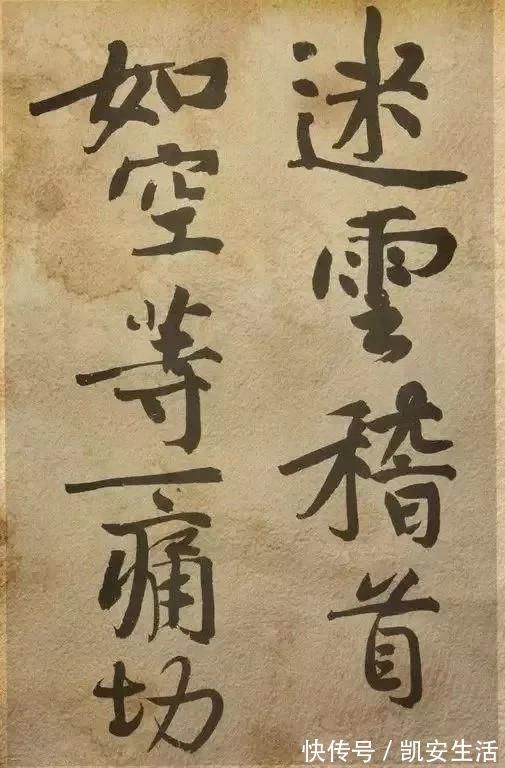 迷雲稽首
如空等一痛切
快传号 / 凯安生活